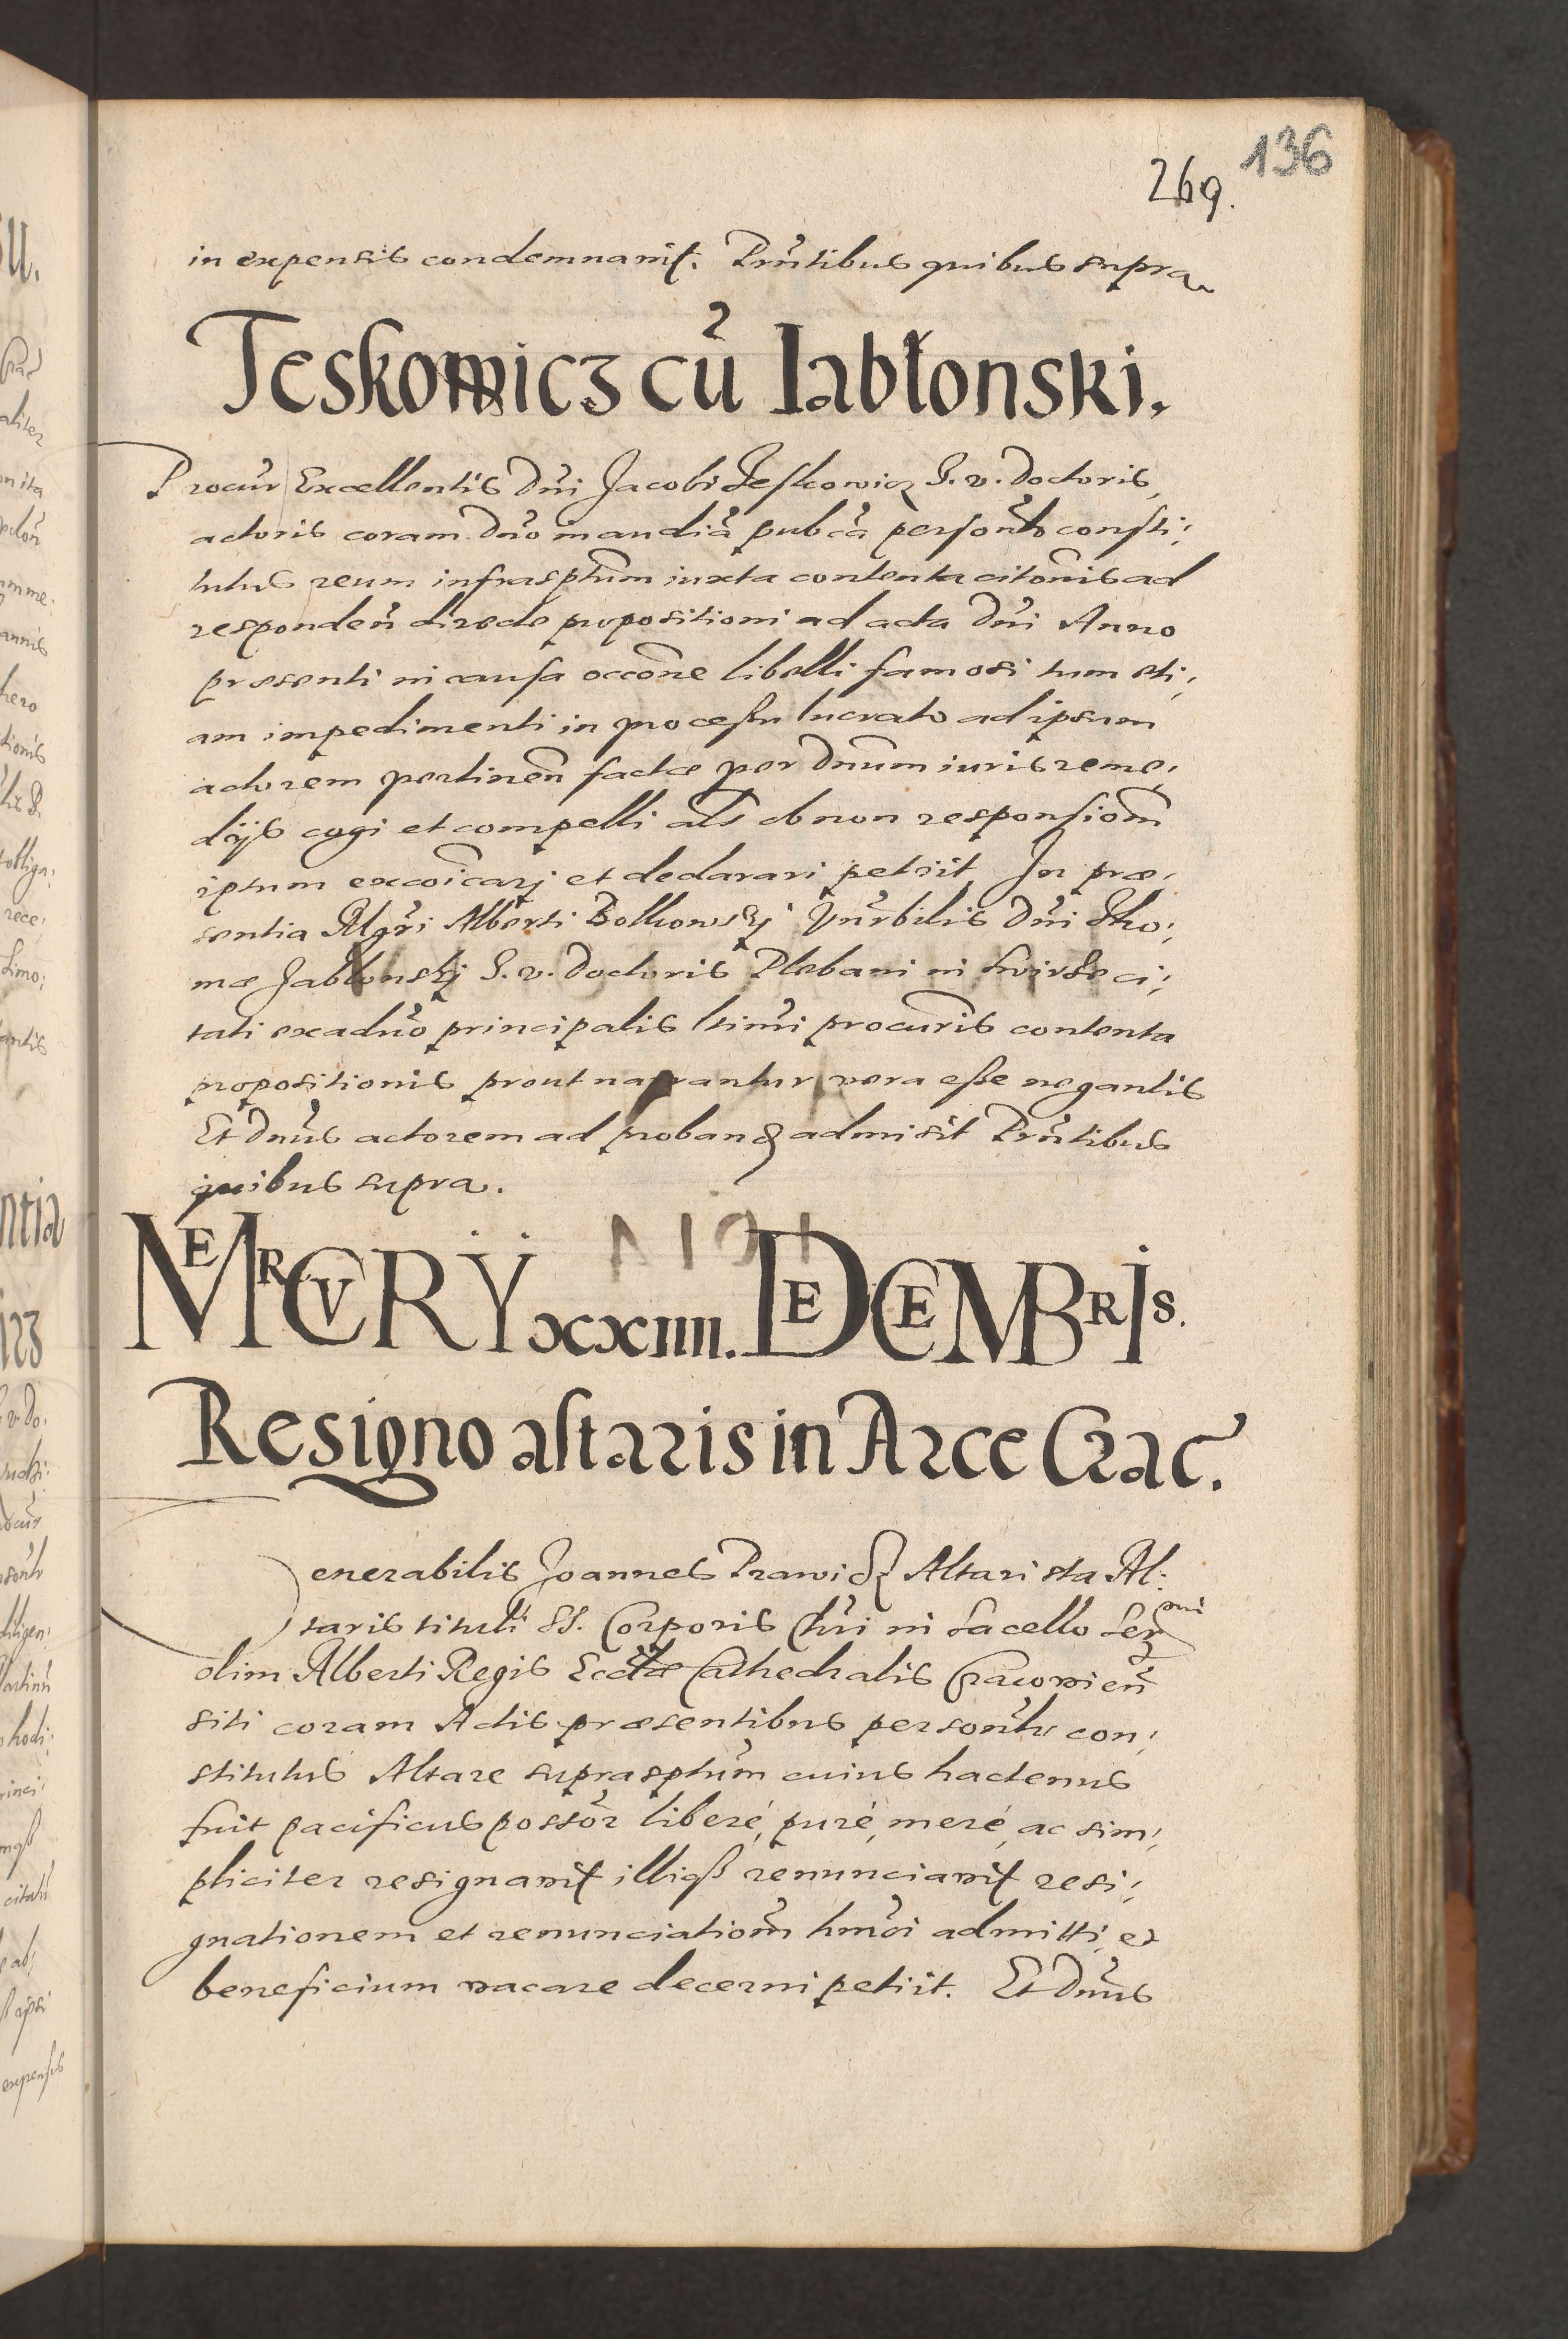 136
269.
in expensis condemnavit. Pntibus quibus supra
Teskowicz cū Iabłonski.
Procur Excellentis Dni Jacobi Teskowicz J. v. Doctoris
actoris coram Dno in audiā pubcā personlr consti:
tutus reum infrasptum iuxta contenta citonis ad
responden directe propositioni ad acta Dni Anno
præsenti in causa occone libelli famosi tum eti:
am impedimenti in processu lucrato ad ipsum
actorem pertinen factæ per Dnum iuris reme:
dijs cogi et compelli als ob non responsiom
ipsum excoicarj et declarari petiit In præ:
sentia Mgri Alberti Bolkowskj Vnrbilis Dni Tho:
mæ Jablonskj J. v. Doctoris Plebani in ci:
tati ex aduo principalis ltimi procuris contenta
propositionis prout narrantur vera esse negantis
Et Dnus actorem ad proband admisit Pntibus
quibus supra.
MERCVRŸ xxiiii. DECEMBRIS.
Resigno altaris in Arce Crac.
enerabilis Joannes Altarista Al:
taris tituli SS. Corporis Chri in Sacello Ser mi
olim Alberti Regis Ecclæ Cathedralis Cracovien
siti coram Actis præsentibus personlr con:
stitutus Altare suprasptum cuius hactenus
fuit pacificus possor liberè, purè, merè, ac sim:
pliciter resignavit illiqß renunciavit resi:
gnationem et renunciatiom hmoi admitti, et
beneficium vacare decerni petiit. Et Dnus